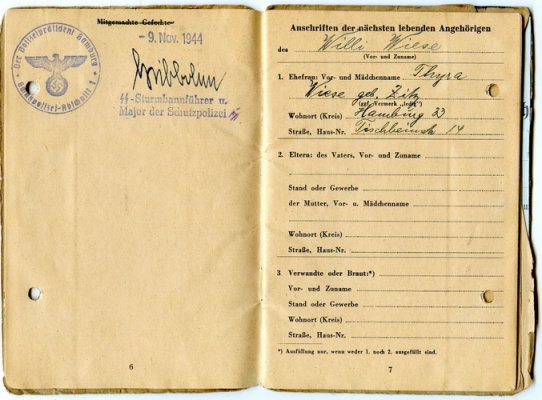 Mitgemachte Gefechte
Der Polizeipräsident Hamburg
- 9. Nov. 1944
SS-Sturmbannführer u.
Major der Schutzpolizei
6
Anschriften der nächsten lebenden Angehörigen
des Willi Wiese
(Vor- und Zuname)
1. Ehefrau: Vor- und Mädchenname Thyra
Wiese geb. Zitz
(ggf. Vermerk „ledig“)
Wohnort (Kreis) Hamburg 33
Straße, Haus-Nr. 14
2. Eltern: des Vaters, Vor- und Zuname
Stand oder Gewerbe
der Mutter, Vor- u. Mädchenname
Wohnort (Kreis)
Straße, Haus-Nr.
3 Verwandte oder Braut:*)
Vor- und Zuname
Stand oder Gewerbe
Wohnort (Kreis)
Straße, Haus-Nr.
*) Ausfüllung nur, wenn weder 1. noch 2. ausgefüllt sind.
7